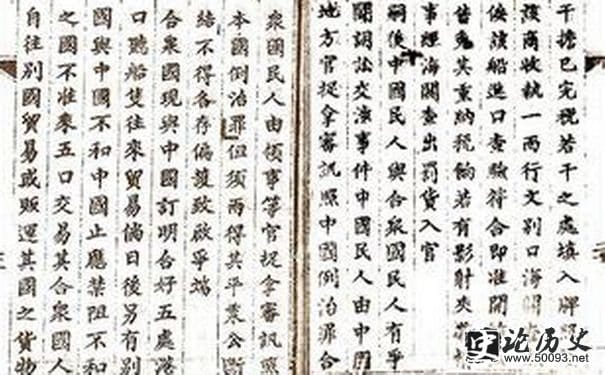 干擔已完稅若干之處填入牌
該商收執一面行文別口海關
俟該船進口查驗符合即准開
免其重納稅餉若有影射夾
事經海關查出罰貨入官
嗣後中國民人與合眾國民人有爭
鬪詞訟交涉事件中國民人由中國
地方官捉拿審訊照中國例治罪合
眾國民人由領事等官捉拿審訊照
本國例治罪但須兩得其平秉公斷
結不得各存偏護致啟爭端
合眾國現與中國訂明合好五處港
口聽船隻往來貿易倘日後另有別
國與中國不和中國止應禁阻不和
之國不准來五口交易其合眾國人
自往別國貿易或販運其國之貨物
论历史
www.50093.net